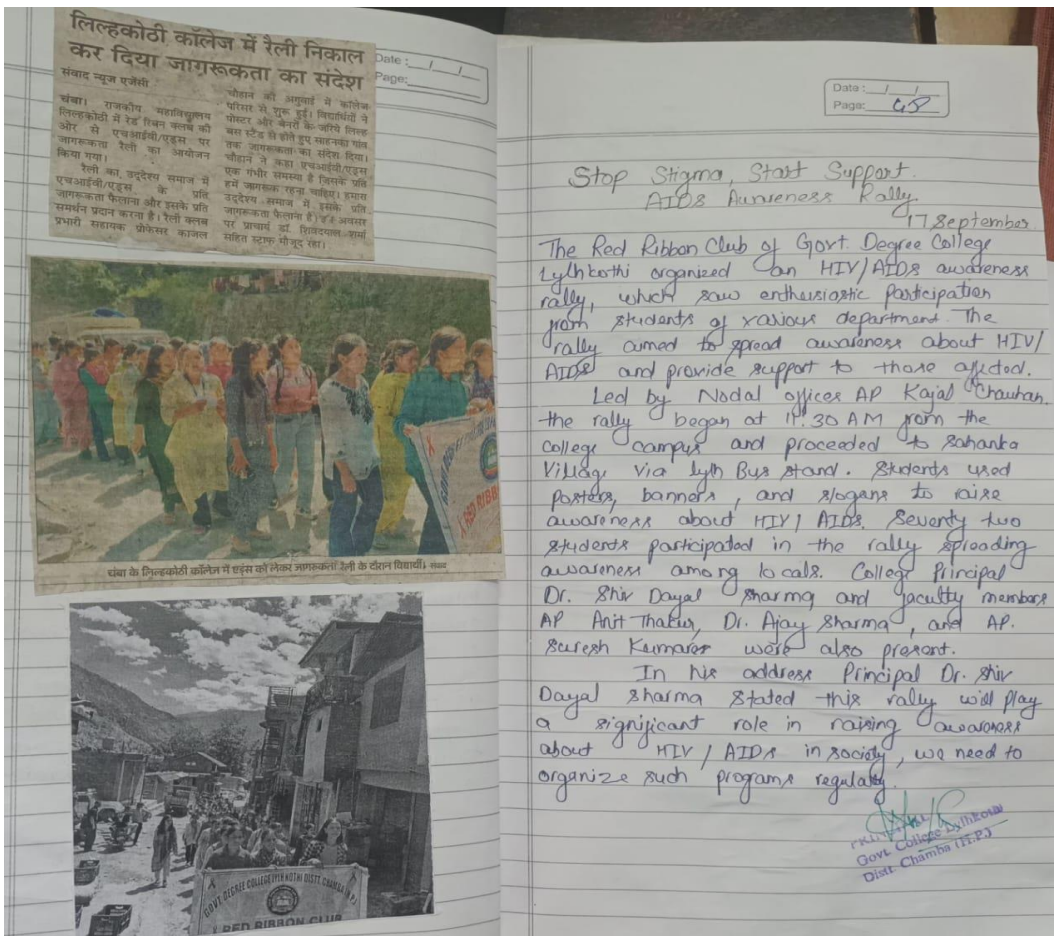 लिल्हकोठी कॉलेज में रैली निकाल
कर दिया जागरूकता का संदेश
संवाद न्यूज एजेंसी
चंबा। राजकीय महाविद्यालय
लिल्हकोठी में रेड रिबन क्लब की
ओर से एचआईवी/एड्स पर
जागरूकता रैली का आयोजन
किया गया।
रैली का उद्देश्य समाज में
एचआईवी/एड्स के प्रति
जागरूकता फैलाना और इसके प्रति
समर्थन प्रदान करना है। रैली क्लब
प्रभारी सहायक प्रोफेसर काजल
चौहान की अगुवाई में कॉलेज
परिसर से शुरू हुई। विद्यार्थियों ने
पोस्टर और बैनरों के जरिये लिल्ह
बस स्टैंड से होते हुए साहनका गांव
तक जागरूकता का संदेश दिया।
चौहान ने कहा एचआईवी/एड्स
एक गंभीर समस्या है जिसके प्रति
हमें जागरूक रहना चाहिए। हमारा
उद्देश्य समाज में इसके प्रति
जागरूकता फैलाना है। इस अवसर
पर प्राचार्य डॉ. शिवदयाल शर्मा
सहित स्टाफ मौजूद रहा।
Date: / /
Page:
RED RIBBON
चंबा के लिल्हकोठी कॉलेज में एड्स को लेकर जागरूकता रैली के दौरान विद्यार्थी। संवाद
GOVT. DEGREE COLLEGE LYLH KOTHI DISTT. CHAMBA (H.P.)
RED RIBBON CLUB
Date: / /
Page: 48
Stop Stigma, Start Support.
AIDS Awareness Rally
17 September
The Red Ribbon Club of Govt. Degree College
Lylhkothi organized an HIV/AIDS awareness
rally, which saw enthusiastic participation
from students of various department. The
rally aimed to spread awareness about HIV/
AIDS and provide support to those affected.
Led by Nodal officer AP Kajal Chauhan.
the rally began at 11:30 AM from the
college campus and proceeded to Sahanka
Village via Lylh Bus stand. Students used
posters, banners, and slogans to raise
awareness about HIV/AIDS. Seventy two
students participated in the rally spreading
awareness among locals. College Principal
Dr. Shiv Dayal Sharma and faculty members
AP Anit Thakur, Dr. Ajay Sharma, and AP.
Suresh Kumar were also present.
In his address Principal Dr. Shiv
Dayal Sharma stated this rally will play
a significant role in raising awareness
about HIV/AIDS in society, we need to
organize such programs regulaly.
Govt. College Lylhkothi
Distt. Chamba (H.P.)